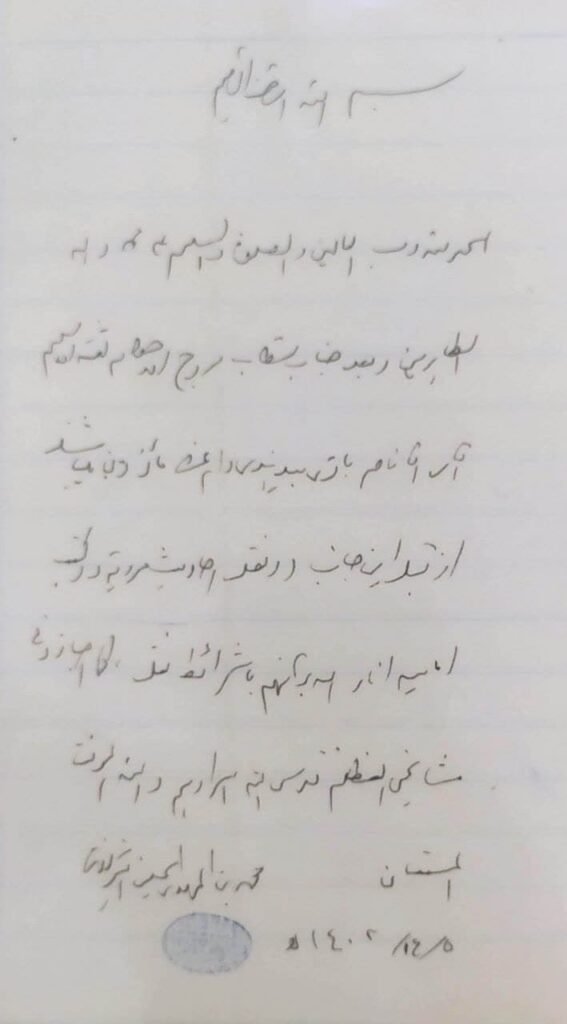 بسم الله الرحمن الرحیم
الحمد لله رب العالمین و الصلوة و السلام علی محمد و اله
الطاهرین و بعد جناب مستطاب مروج الاحکام ثقة الاسلام
آقای آقا ناصر دام عزه مأذون میباشند
از قبل این جانب در نقل احادیث مرویه در کتب
امامیه انار الله برهانهم با شرائط نقل کما اجازونی
مشایخی العظام قدس الله اسرارهم و الله الموفق
المستعان محمد بن المهدی الحسینی الشیرازی
١٤٠٢ ه /١٤/٥